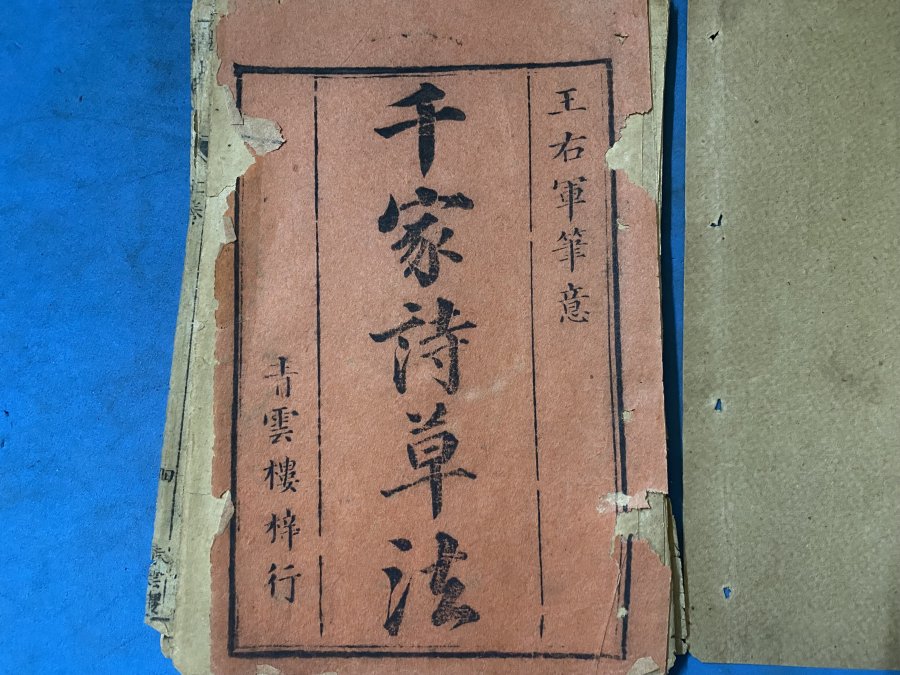 王右軍筆意
千家詩草法
青雲樓梓行